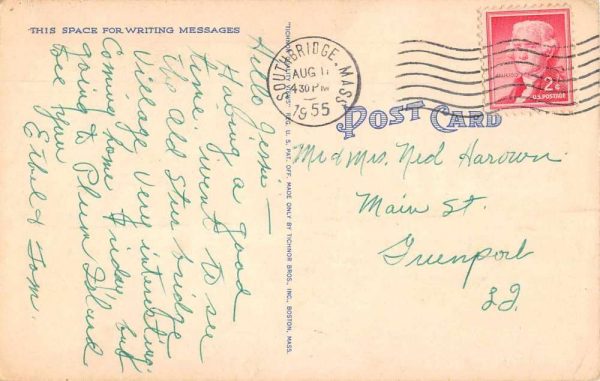 THIS SPACE FOR WRITING MESSAGES
Hello Jessie —
Having a good
time went to see
the old Stur bridge
Village very interesting.
Coming home Friday but
going to Plum Island
see you
Ethel & Tom.
"TICHNOR QUALITY VIEWS" REG. U. S. PAT. OFF. MADE ONLY BY TICHNOR BROS., INC., BOSTON, MASS.
SOUTHBRIDGE, MASS
AUG 1
4 30 PM
1955
2¢
U.S. POSTAGE
POST CARD
Mr & Mrs. Ned Harown
Main St.
Greenport
L I